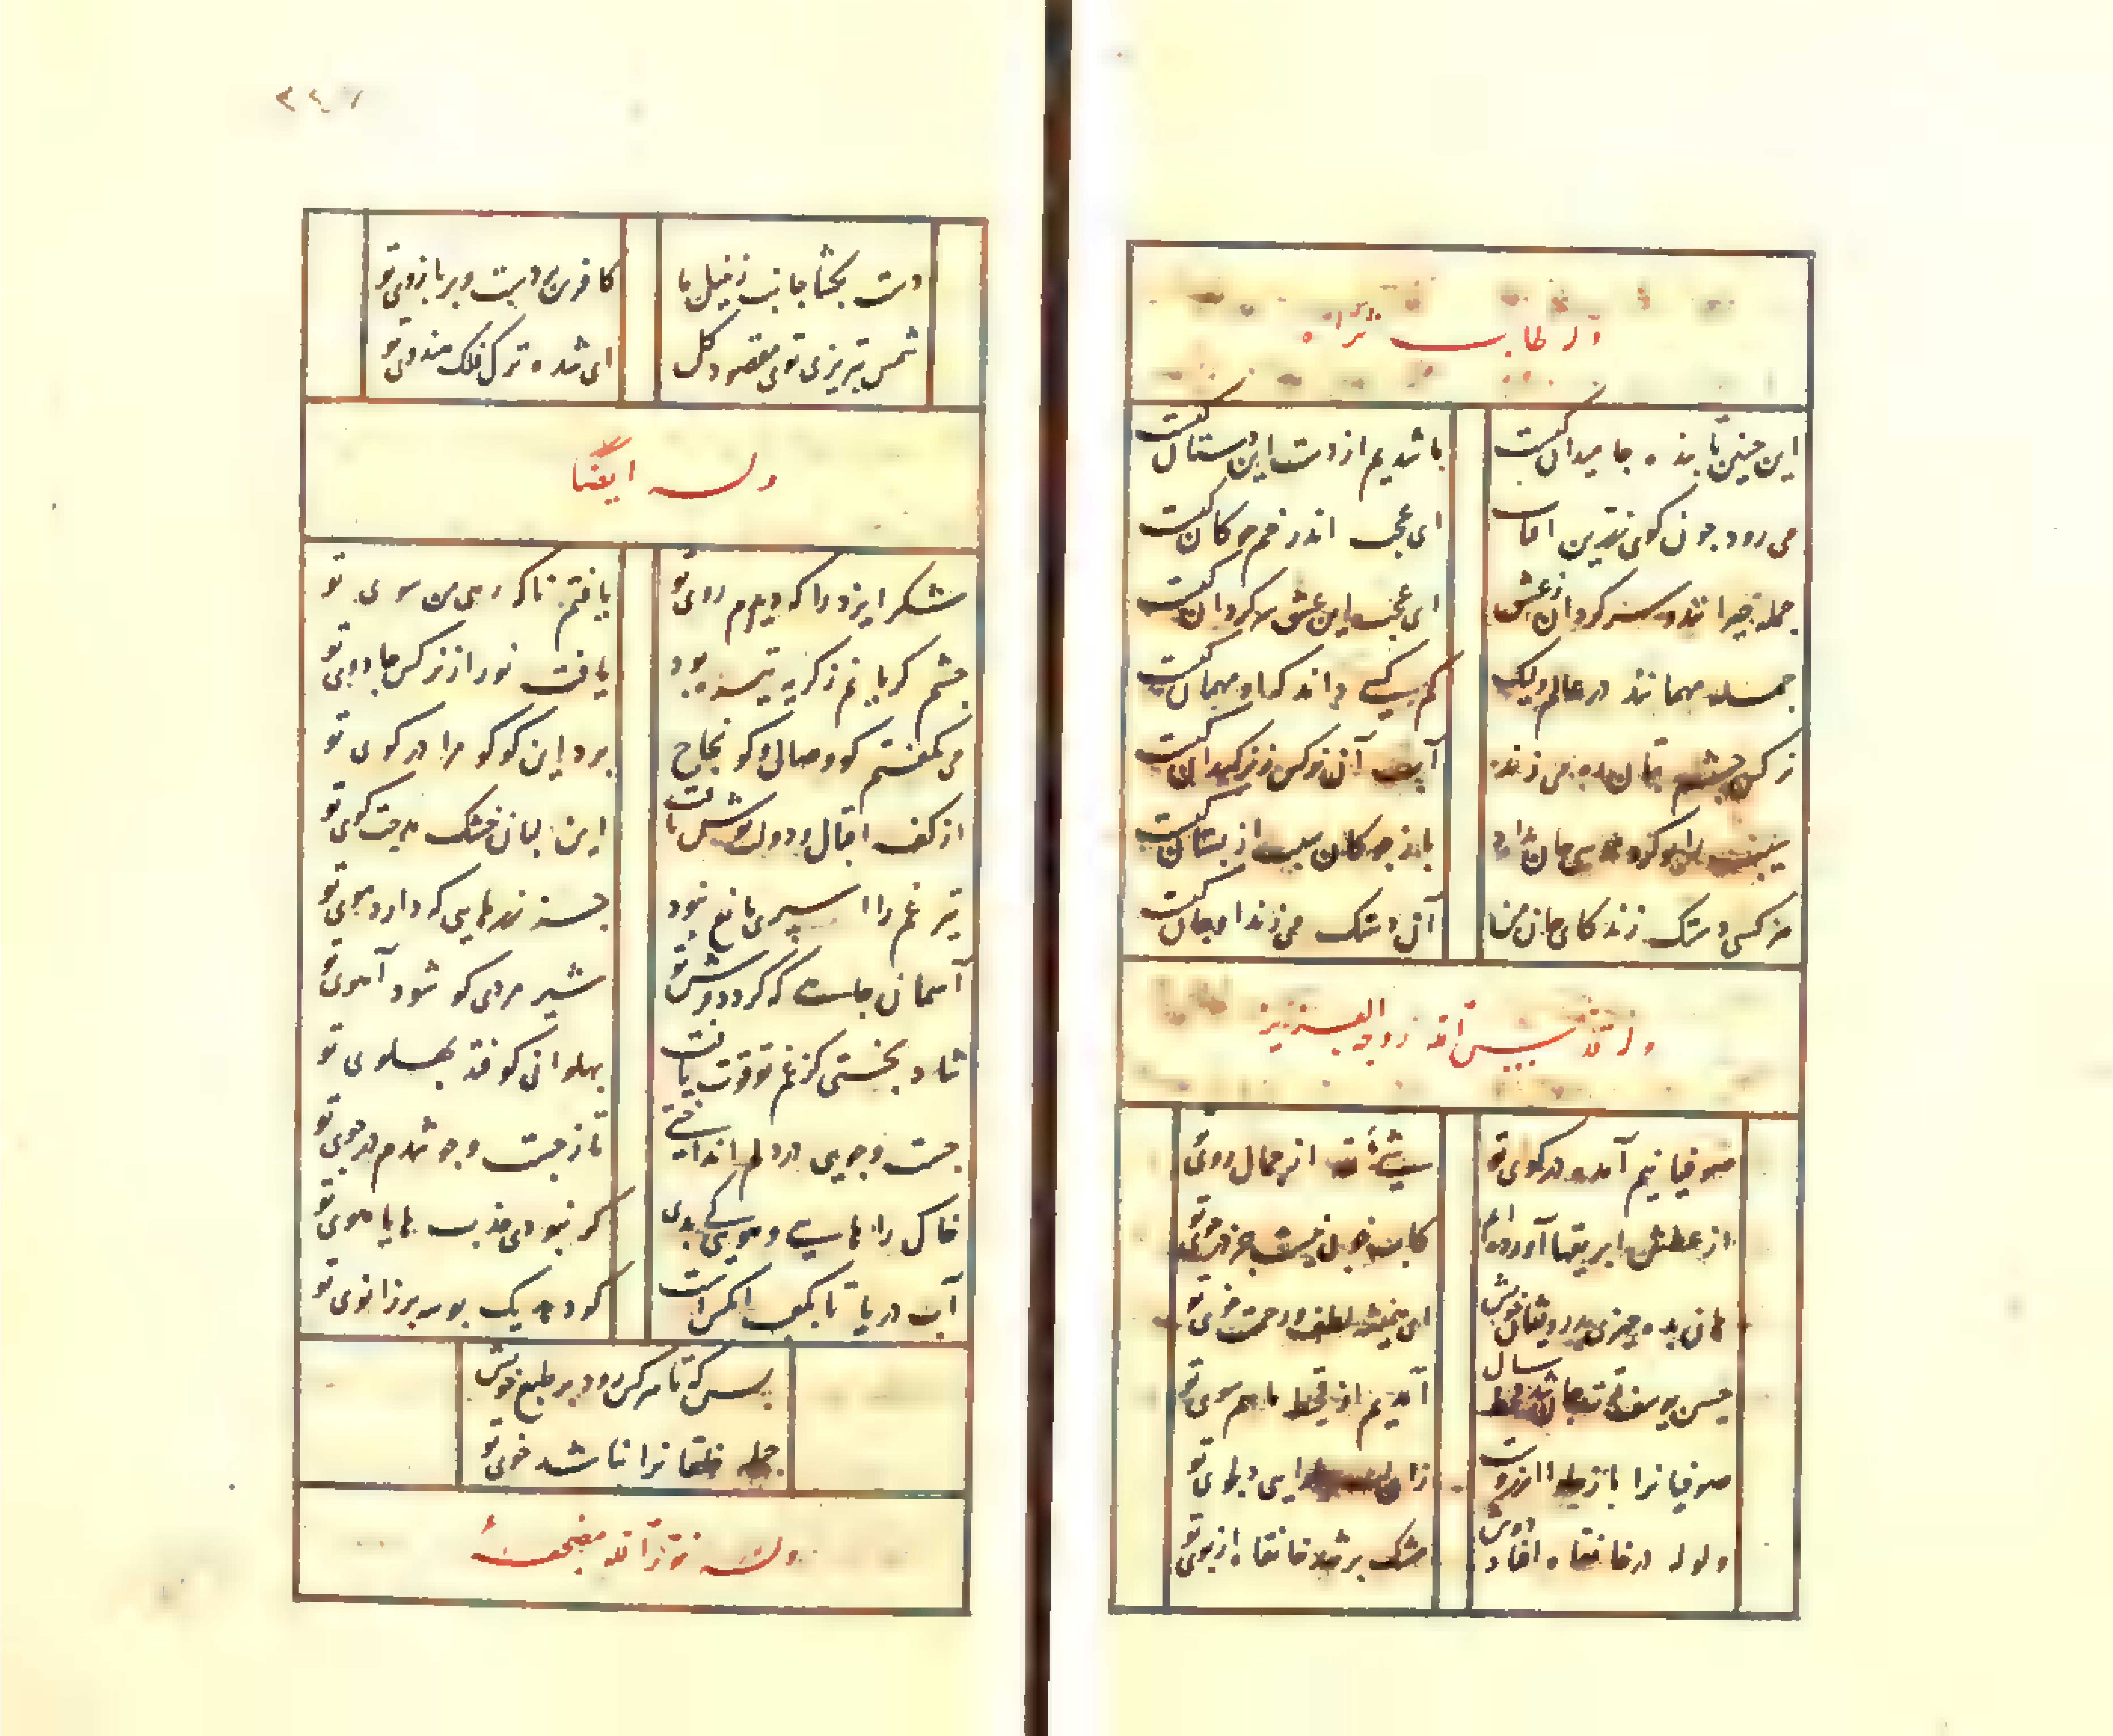 وله طاب ثراه
این چنین تابنده جامیدان کیست
باشدیم از دست این دستان کیست
می رود چون کوی زرین اماب
ای عجب اندر خم جوکان کیست
جمله حیرانند و سرکردان زعشق
ای عجب این عشق سرکردان کیست
جمله مهمانند در عالم ولیک
کم کسی داند که او مهمان کیست
نرکس چشم بتان ره می زند
آب آن نرکس ز نرکسدان کیست
باز جو کان سیب از بستان کیست
هر کسی دستک زند کای جان من
آن دستک می زند او جان کیست
وله قدس الله روحه العزیز
صوفیانیم آمده در کوی تو
شیء لله از جمال روی تو
از عطش ابریقها آورده ایم
کاب خوبی نیست جز در جوی تو
هان بده چیزی بدرویشان خویش
ای همیشه لطف و رحمت خوی تو
حسن یوسف قوت جان شد سال قحط
آمدیم از قحط ما هم سوی تو
صوفیانرا باز حلوا آرزوست
از لب حلوایی دلجوی تو
ولوله در خانقاه افتاد دوش
مشک پر شد خانقاه از بوی تو
۲۴۷
دست بکشا جانب زنبیل ما
کافرین بر دست و بر بازوی تو
شمس تبریزی توی مقصود کل
ای شده ترک فلک هندوی تو
وله ایضا
شکر ایزد را که دیدم روی تو
یافتم ناکه رهی من سوی تو
چشم کریانم ز کریه تیره بود
یافت نور از نرکس جادوی تو
می بکفتم کو وصال و کو نجاح
برد این کو کو مرا در کوی تو
از کف اقبال و دولت شربت یافت
این لبان خشک مدحت کوی تو
تیر غم را اسپری مانع نبود
جز زرهایی که دارد موی تو
آسمان جاهی که کردد فرش تو
شیر مردی کو شود آهوی تو
شاد بختی کز غم تو قوت یافت
پهلوانی کو فتد پهلوی تو
جست و جویی در دلم انداختی
تا ز جست و جو شدم در جوی تو
خاک را هایی و هویی کی بدی
کر نبودی جذب های و هوی تو
آب دریا تا بکعب آمد مراست
کو دهد یک بوسه بر زانوی تو
بس که تا هر کس رود بر طبع خویش
جمله خلقانرا نباشد خوی تو
وله نور الله مضجعه